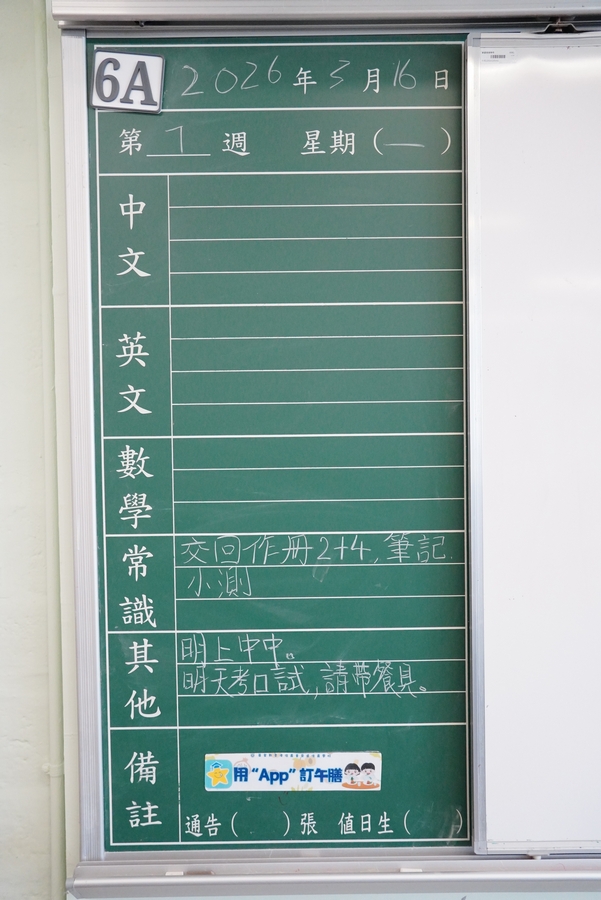 6A 2026年3月16日
第7週 星期(一)
中文
英文
數學
常識
交回作冊2+4,筆記.
小測
其他
明上中中。
明天考口試,請帶餐具。
備註
用“App”訂午膳
通告( )張 值日生( )